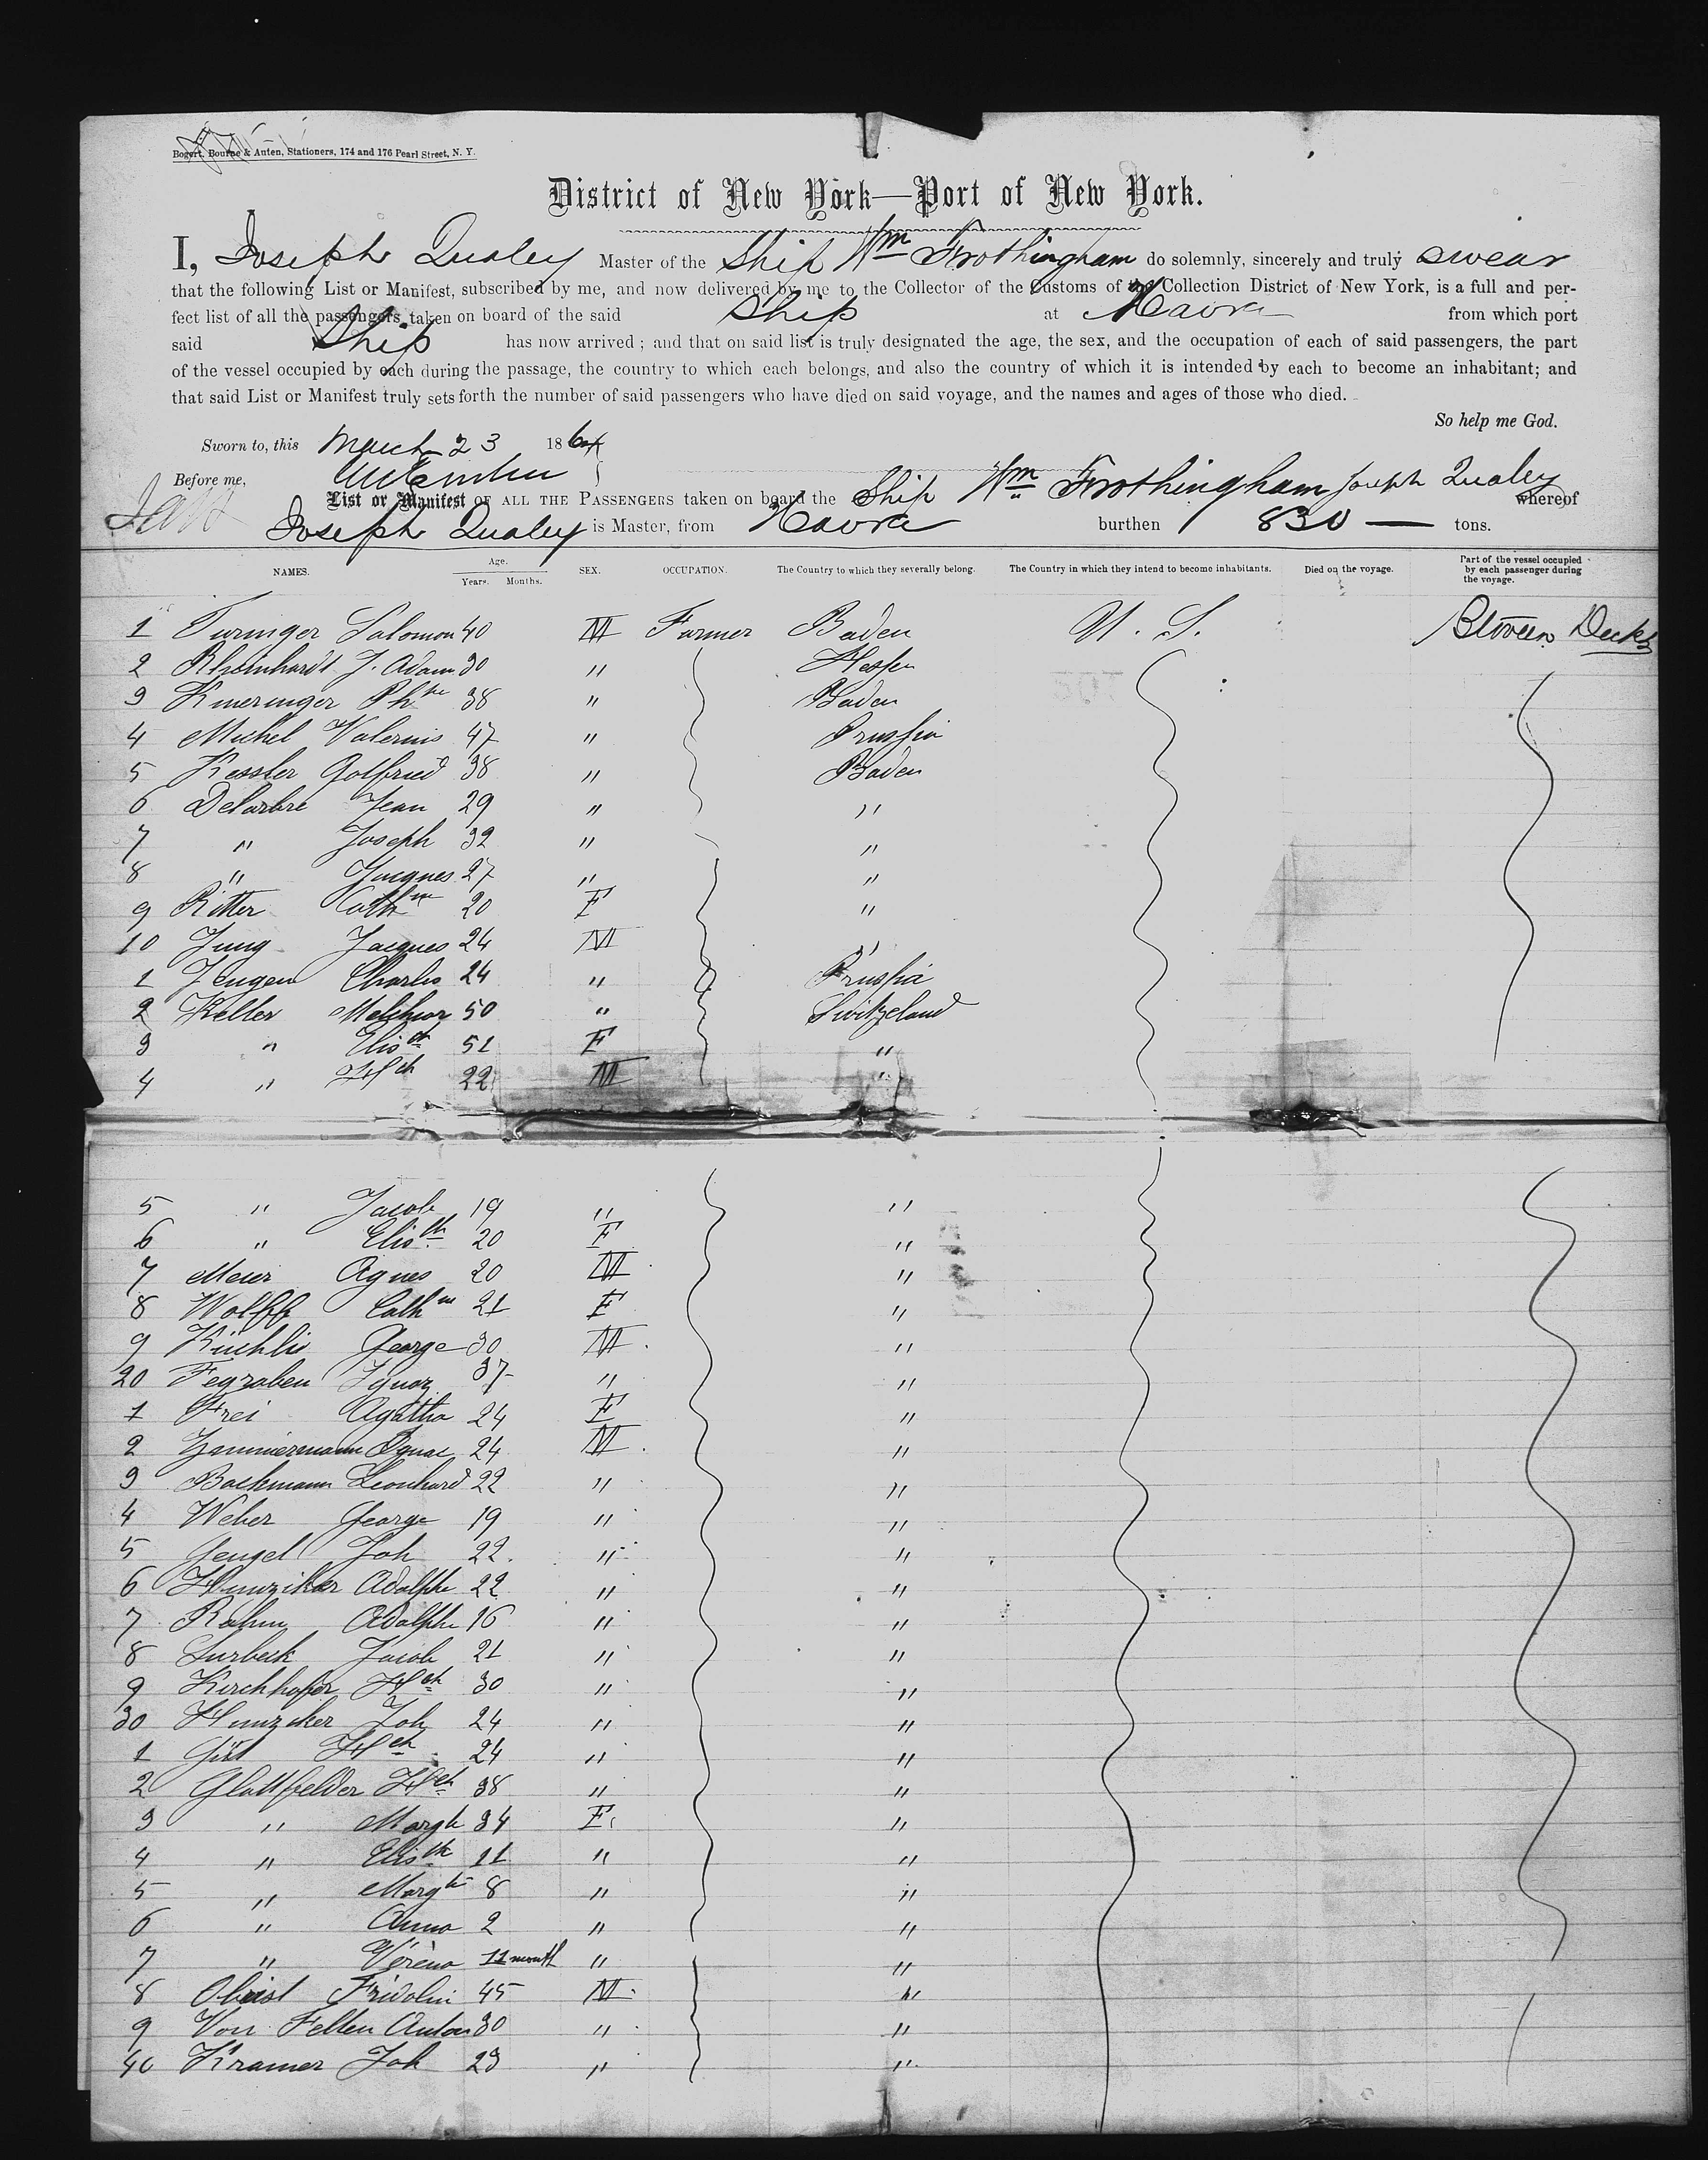 Bogert, Bourne & Auten, Stationers, 174 and 176 Pearl Street, N. Y.
District of New York—Port of New York.
I, Joseph Qualey Master of the Ship Wm Frothingham do solemnly, sincerely and truly swear
that the following List or Manifest, subscribed by me, and now delivered by me to the Collector of the Customs of the Collection District of New York, is a full and per-
fect list of all the passengers taken on board of the said Ship at Havre from which port
said Ship has now arrived; and that on said list is truly designated the age, the sex, and the occupation of each of said passengers, the part
of the vessel occupied by each during the passage, the country to which each belongs, and also the country of which it is intended by each to become an inhabitant; and
that said List or Manifest truly sets forth the number of said passengers who have died on said voyage, and the names and ages of those who died.
So help me God.
Sworn to, this March 23 1864
Before me,
List or Manifest OF ALL THE PASSENGERS taken on board the Ship Wm Frothingham Joseph Qualey whereof
Joseph Qualey is Master, from Havre burthen 830 — tons.
NAMES. Age. Years. Months. SEX. OCCUPATION. The Country to which they severally belong. The Country in which they intend to become inhabitants. Died on the voyage. Part of the vessel occupied by each passenger during the voyage.
1 Turinger Salomon 40 M Farmer Baden U. S. Between Decks
2 Rheinhardt J. Adam 30 " Hessen
3 Kmeringer Phne 38 " Baden
4 Michel 47 " Prussia
5 Kessler Gotfried 38 " Baden
6 Delarbre Jean 29 " "
7 " Joseph 32 " "
8 " Jacques 27 " "
9 Ritter Cathne 20 F "
10 Jung Jacques 24 M "
1 Jengen Charles 24 " Prussia
2 Keller Melchior 50 " Switzeland
3 " Elisth 51 F "
4 " Hch 22 M "
5 " Jacob 19 " "
6 " Elisth 20 F "
7 Meier Agnes 20 M "
8 Wolff Cathne 21 F "
9 Küchlis George 30 M "
20 Fegraben Ignaz 37 " "
1 Frei Agatha 24 F "
2 Zimmermann Ignac 24 M "
3 Backmann Leonhard 22 " "
4 Weber George 19 " "
5 Gengel Joh 22 " "
6 Hunziker Adolphe 22 " "
7 Rahm Adolphe 16 " "
8 Surbeck Jacob 21 " "
9 Kirchhofer Hch 30 " "
30 Hunzeker Joh 24 " "
1 Hch 24 " "
2 Glattfelder Hch 38 " "
3 " Margh 34 F "
4 " Elisth 11 " "
5 " Margth 8 " "
6 " Anna 2 " "
7 " Verena 11 month " "
8 Obrist Fridolin 45 M "
9 Von Felten Anton 30 " "
40 Kramer Joh 23 " "